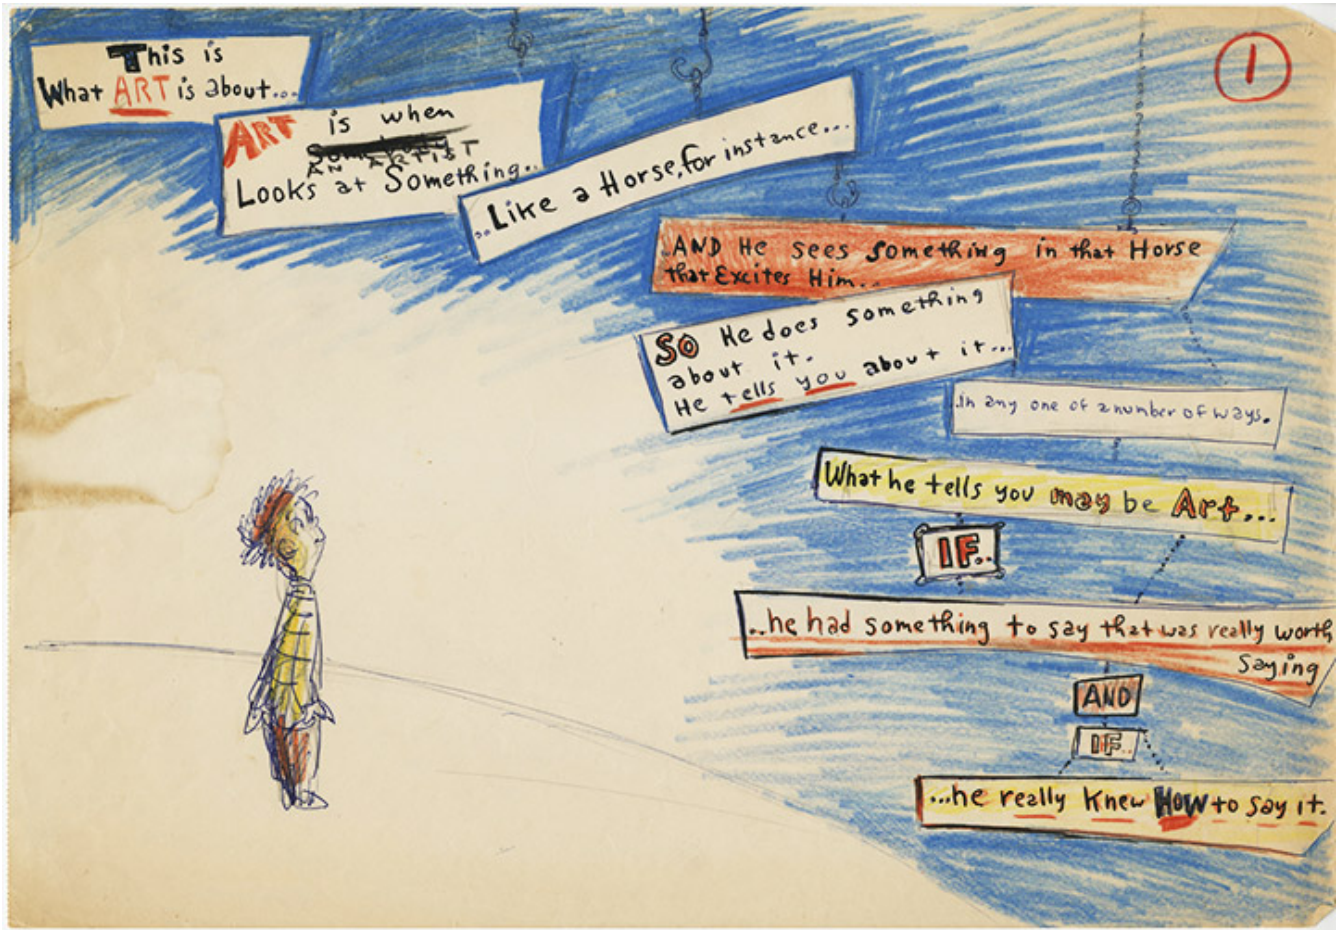 1
This is
What ART is about...
ART is when
Somebody
AN ARTIST
Looks at Something..
..Like a Horse, for instance...
.AND He sees something in that Horse
that Excites Him..
SO He does something
about it.
He tells you about it...
.In any one of a number of ways.
What he tells you may be Art...
IF..
..he had something to say that was really worth
Saying
AND
IF..
...he really Knew HOW to say it.